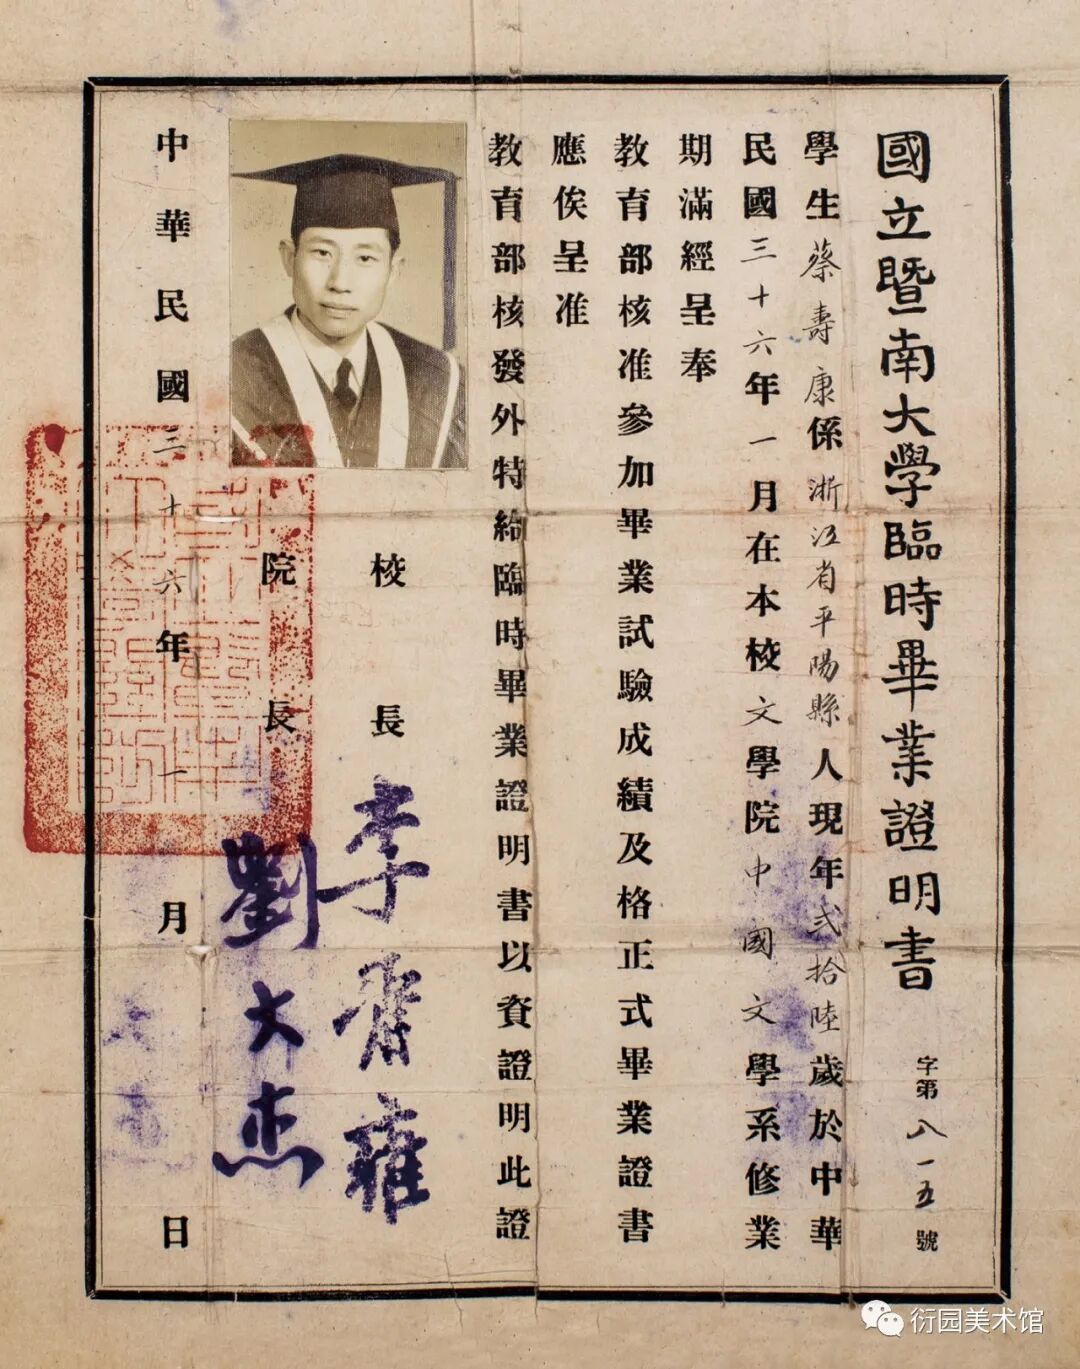 國立暨南大學臨時畢業證明書
字第八一五號
學生蔡壽康係浙江省平陽縣人現年弍拾陸歲於中華
民國三十六年一月在本校文學院中國文學系修業
期滿經呈奉
教育部核准參加畢業試驗成績及格正式畢業證書
應俟呈准
教育部核發外特給臨時畢業證明書以資證明此證
校長 李壽雍
院長 劉大杰
中華民國三十六年一月 日
衍园美术馆